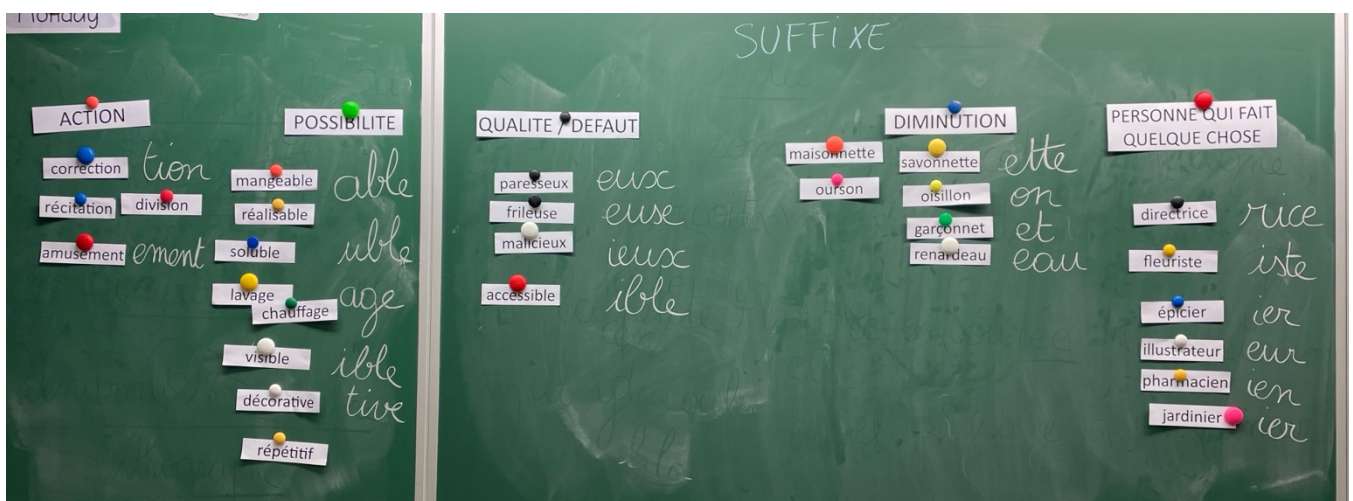 Monday
SUFFIXE
ACTION
correction tion
récitation division
amusement ement
POSSIBILITE
mangeable able
réalisable
soluble uble
lavage age
chauffage
visible ible
décorative tive
répétitif
QUALITE / DEFAUT
paresseux eux
frileuse euse
malicieux ieux
accessible ible
DIMINUTION
maisonnette savonnette ette
ourson oisillon on
garçonnet et
renardeau eau
PERSONNE QUI FAIT
QUELQUE CHOSE
directrice rice
fleuriste iste
épicier ier
illustrateur eur
pharmacien ien
jardinier ier